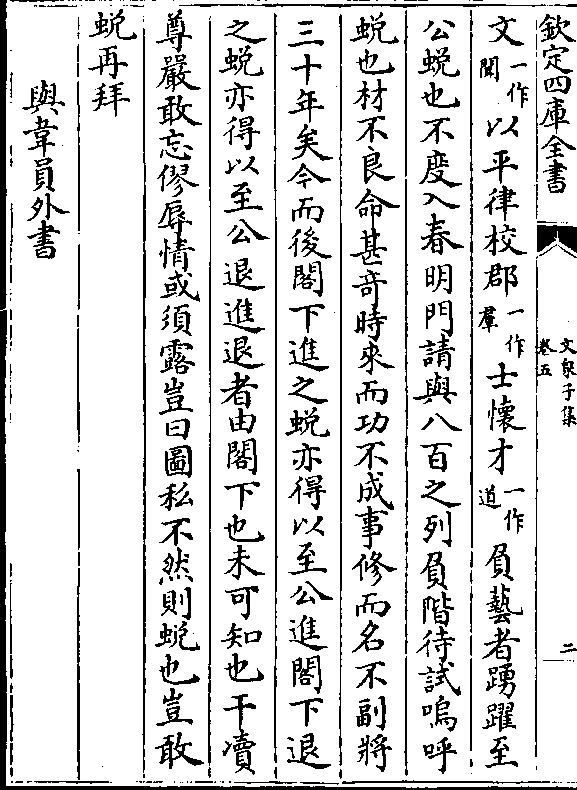 欽定四庫全書
文泉子集
卷五
二
文一作聞以平律校郡一作羣士懷才一作道負藝者踴躍至
公蜕也不度入春明門請與八百之列負階待試嗚呼
蜕也材不良命甚竒時來而功不成事修而名不副將
三十年矣今而後閣下進之蜕亦得以至公進閣下退
之蜕亦得以至公退進退者由閣下也未可知也干凟
尊嚴敢忘僇辱情或須露豈曰圖私不然則蜕也豈敢
蜕再拜
與韋員外書